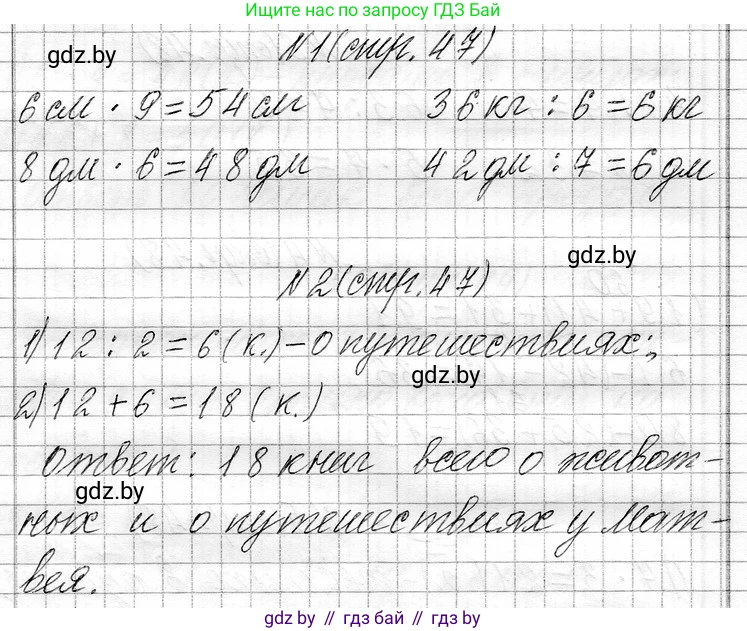 Ищите нас по запросу ГДЗ Бай
gdz.by
№1(стр. 47)
6 см · 9 = 54 см 36 кг : 6 = 6 кг
8 дм · 6 = 48 дм 42 дм : 7 = 6 дм
gdz.by
№2(стр. 47)
1) 12 : 2 = 6 (к.) – о путешествиях;
gdz.by
2) 12 + 6 = 18 (к.)
Ответ: 18 книг всего о живот-
gdz.by
ных и о путешествиях у Мат-
вея.
gdz.by // гдз бай // gdz.by